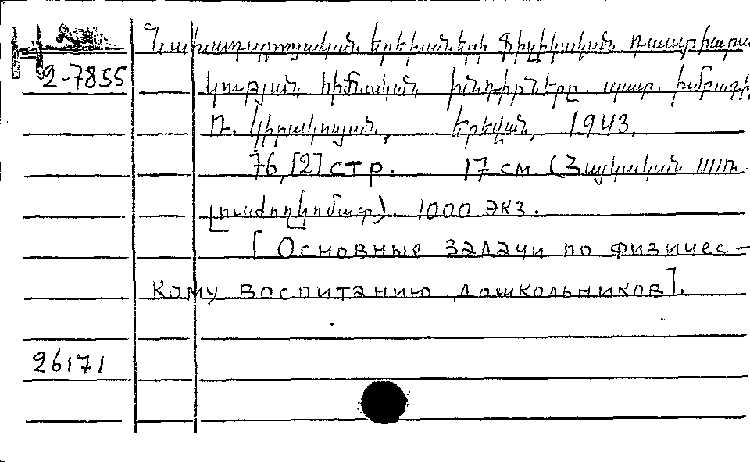 Նախադպրոցական երեխաների ֆիզիկական դաստիարա
2-7855 կության հիմնական խնդիրները. պատ. խմբագիր
Ռ. Կիրակոսյան, Երևան, 1943.
76,[2] стр. 17 см (Հայկական ՍՍՌ.
լուսժողկոմատ). 1000 экз.
[Основные задачи по физичес-
кому воспитанию дошкольников].
26171